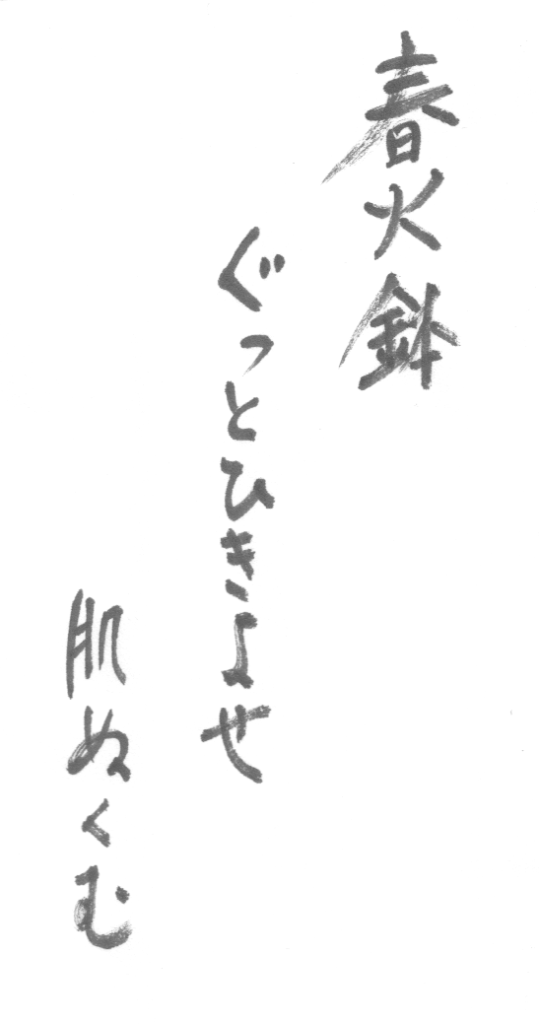 春火鉢
ぐっとひきよせ
肌ぬくむ